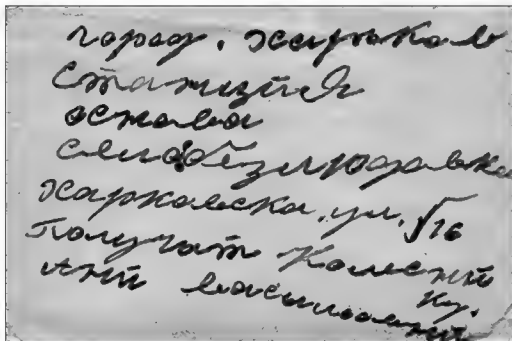 город. харьков
станция
основа
слибезлюдовка
харковска. ул. √16
Получат Колесни
ку.
Анй василовни